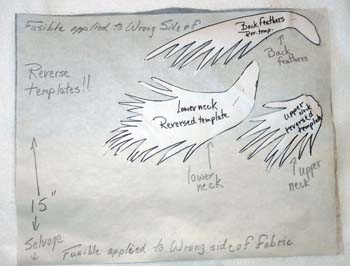 Fusible applied to Wrong Side of
Back feathers
Rev. temp.
Back
feathers
Reverse
Templates!!
Lower neck
Reversed template
upper neck
reversed
template
lower
neck
upper
neck
15"
Selvage
Fusible applied to Wrong side of Fabric